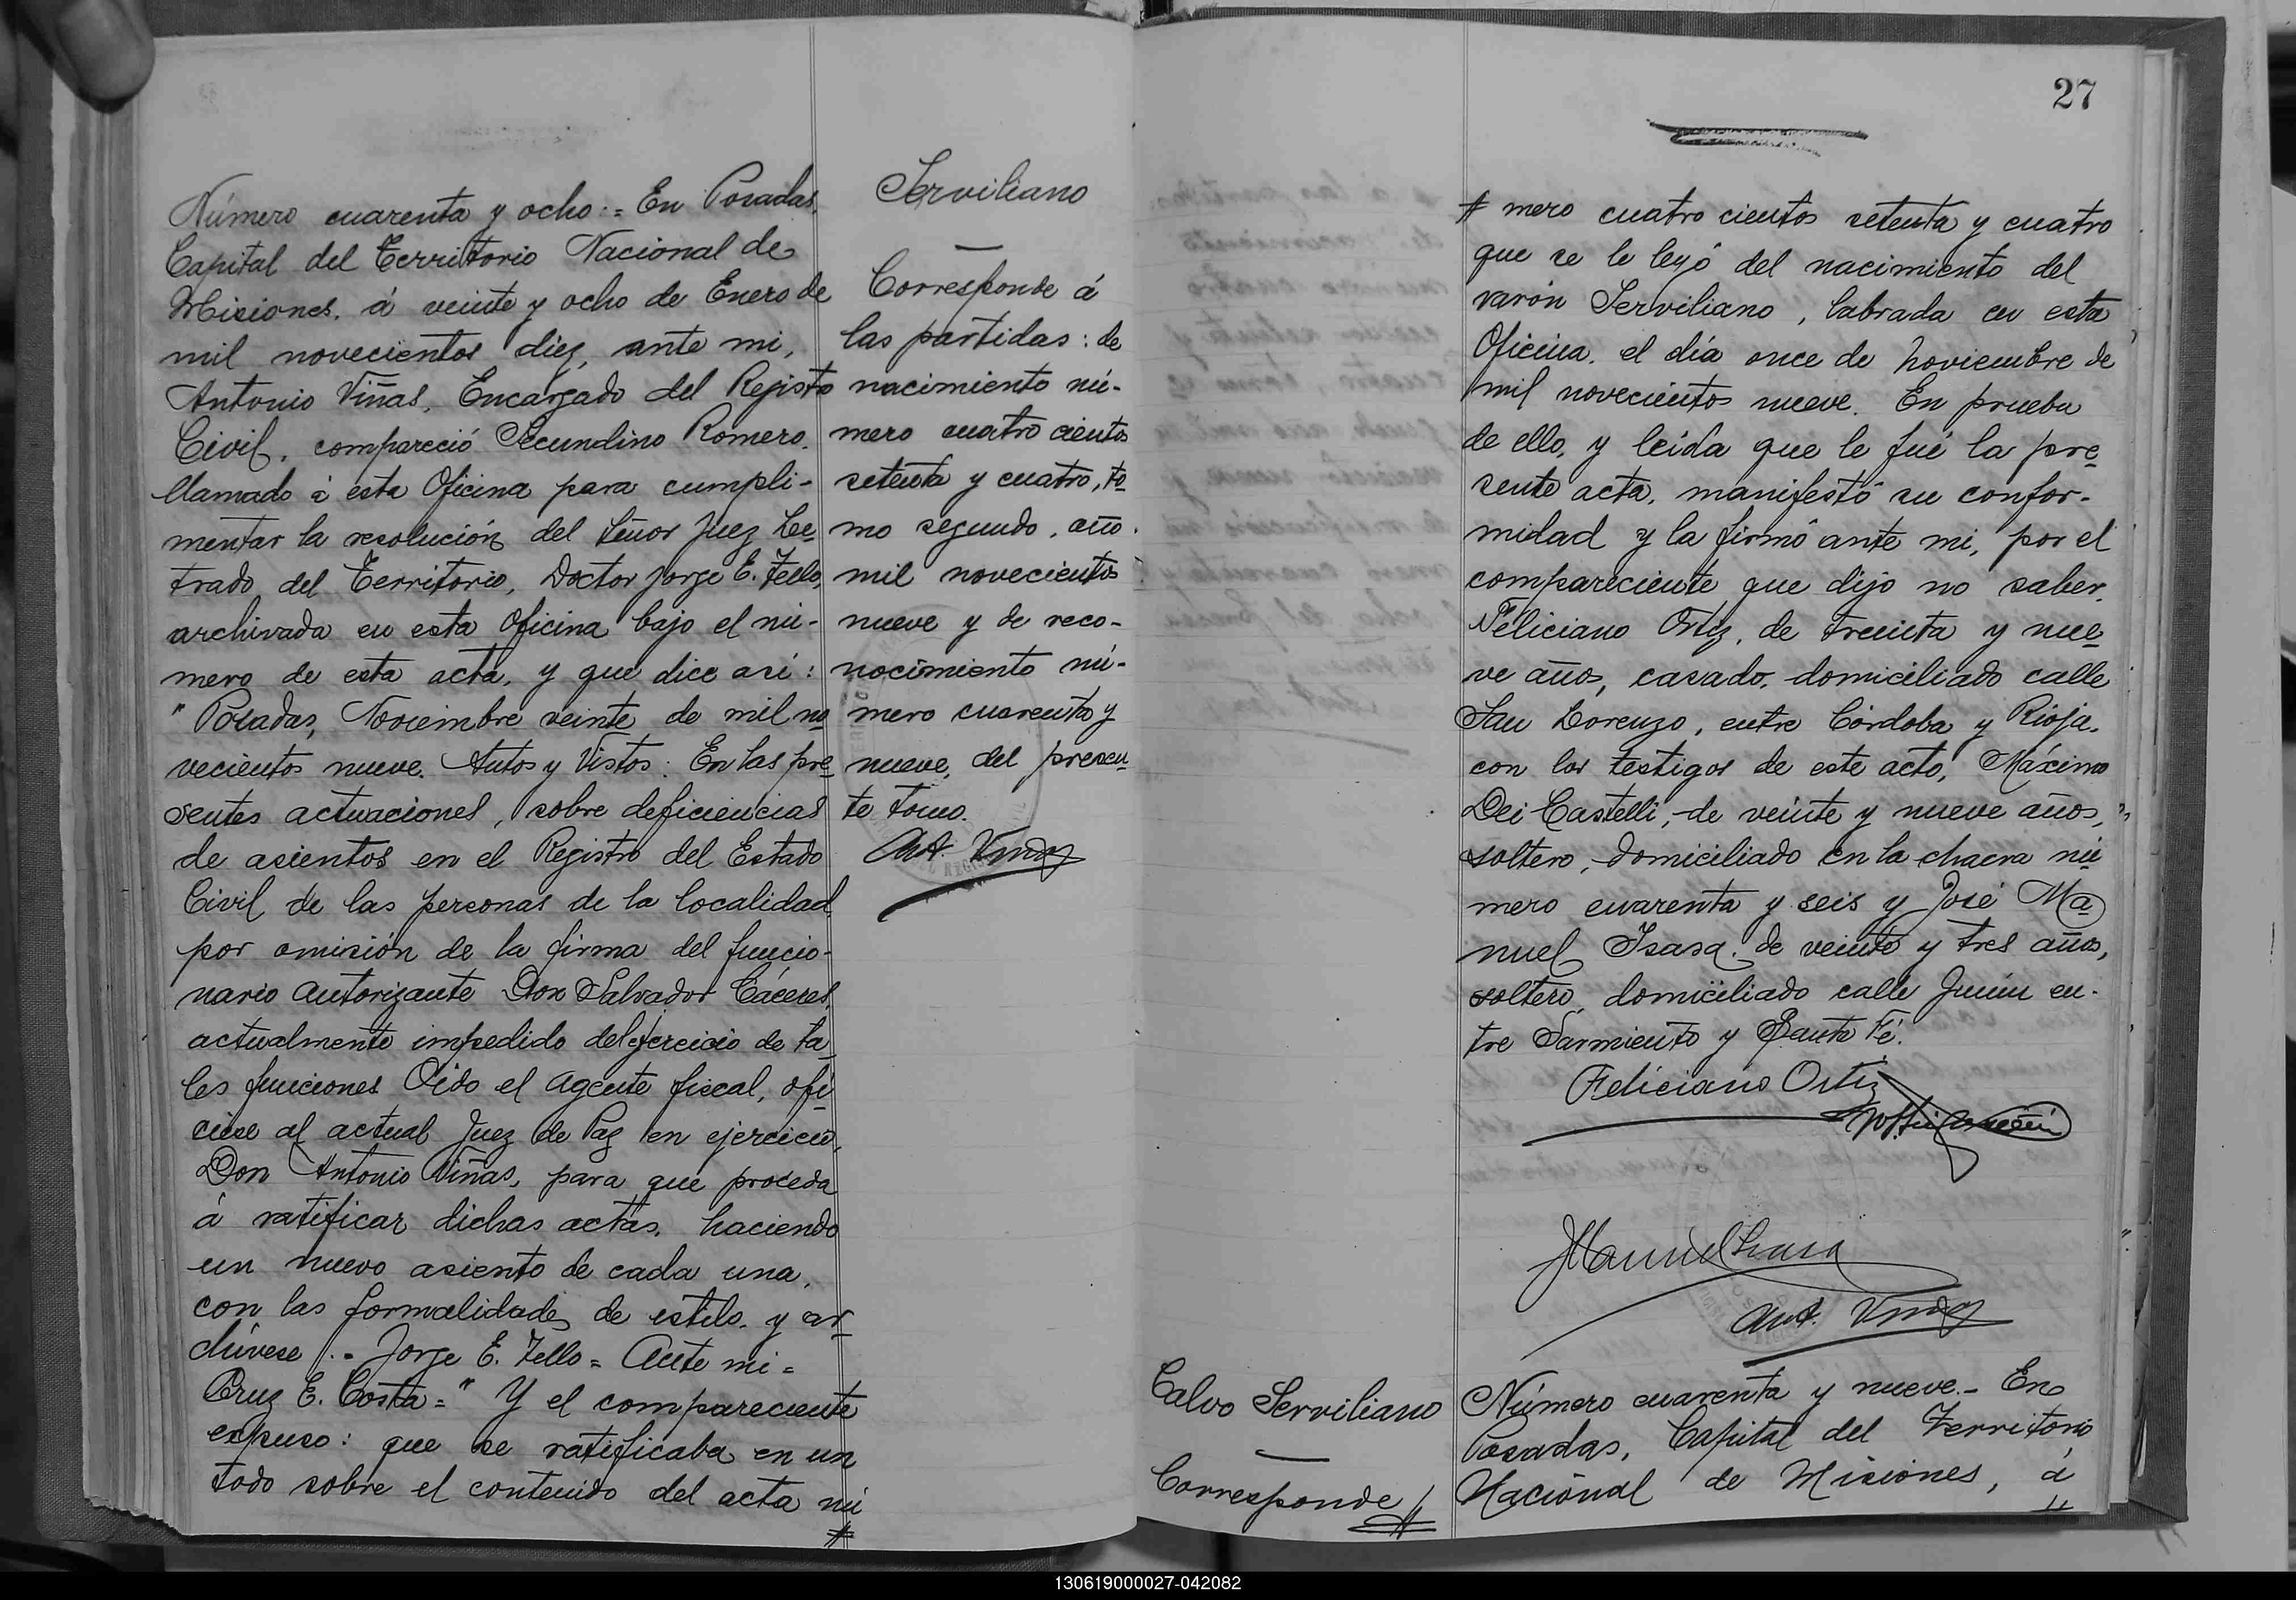 Número cuarenta y ocho:= En Posadas,
Capital del Territorio Nacional de
Misiones, á veinte y ocho de Enero de
mil novecientos diez, ante mi,
Antonio Viñas, Encargado del Registro
Civil, compareció Secundino Romero,
llamado á esta Oficina para cumpli-
mentar la resolución del Señor Juez Le-
trado del Territorio, Doctor Jorge E. Tello,
archivada en esta Oficina bajo el nú-
mero de esta acta, y que dice así:
"Posadas, Noviembre veinte de mil no
vecientos nueve. Autos y Vistos: En las pre
sentes actuaciones, sobre deficiencias
de asientos en el Registro del Estado
Civil de las personas de la localidad
por omisión de la firma del funcio-
nario autorizante Don Salvador Cáceres,
actualmente impedido del ejercicio de ta
les funciones Oido el Agente fiscal, ofi
ciese al actual Juez de Paz en ejercicio,
Don Antonio Viñas, para que proceda
á ratificar dichas actas, haciendo
un nuevo asiento de cada una,
con las formalidades de estilo, y ar
chívese.- Jorge E. Tello = Ante mi =
Cruz E. Costa =" Y el compareciente
expuso: que se ratificaba en un
todo sobre el contenido del acta nú
#
Serviliano
Corresponde á
las partidas: de
nacimiento nú-
mero cuatro cientos
setenta y cuatro, to
mo segundo, año
mil novecientos
nueve y de reco-
nocimiento nú-
mero cuarenta y
nueve, del presen
te tomo.
Ant. Viñas
27
# mero cuatro cientos setenta y cuatro
que se le leyó del nacimiento del
varón Serviliano, labrada en esta
Oficina, el día once de Noviembre de
mil novecientos nueve. En prueba
de ello, y leída que le fué la pre
sente acta, manifestó su confor-
midad y la firmó ante mi, por el
compareciente que dijo no saber,
Feliciano Ortiz, de treinta y nue
ve años, casado, domiciliado calle
San Lorenzo, entre Córdoba y Rioja,
con los testigos de este acto, Máximo
Dei Castelli, de veinte y nueve años,
soltero, domiciliado en la chacra nú
mero cuarenta y seis y José Ma
nuel Isasa, de veinte y tres años,
soltero, domiciliado calle Junín en-
tre Sarmiento y Santa Fé.
Feliciano Ortiz
Ant. Viñas
Calvo Serviliano
Corresponde #
Número cuarenta y nueve.- En
Posadas, Capital del Territorio
Nacional de Misiones, á
130619000027-042082